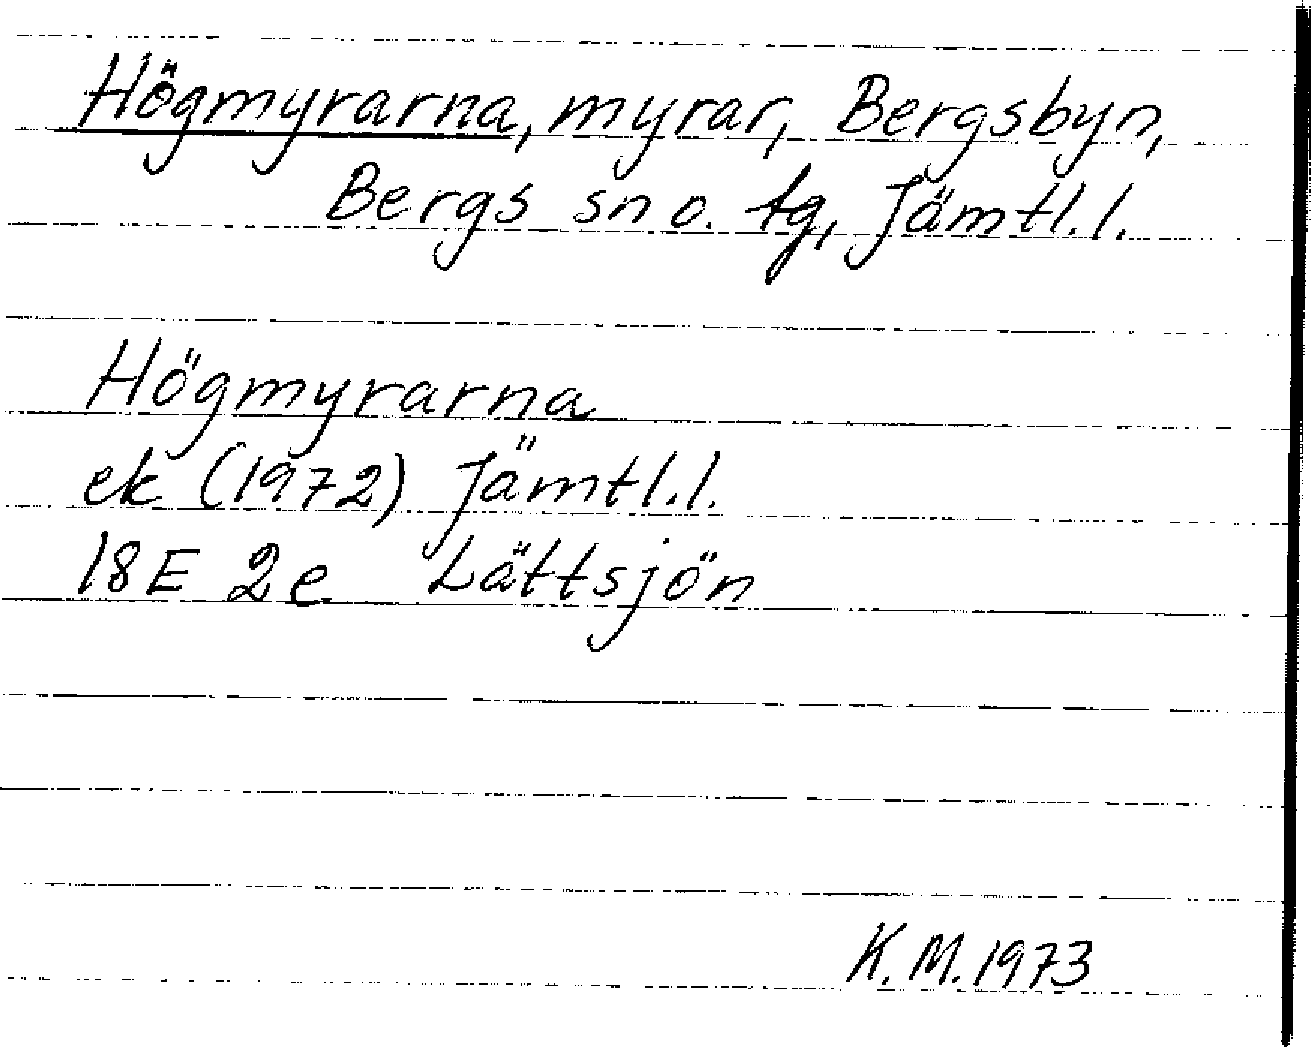 Högmyrarna, myrar, Bergsbyn,
Bergs sn o. tg, Jämtl.l.
Högmyrarna
ek (1972) Jämtl.l.
18E 2e Lättsjön
K.M.1973